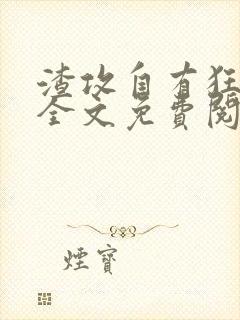 渣攻自有狂
全文免費閱
煙寶